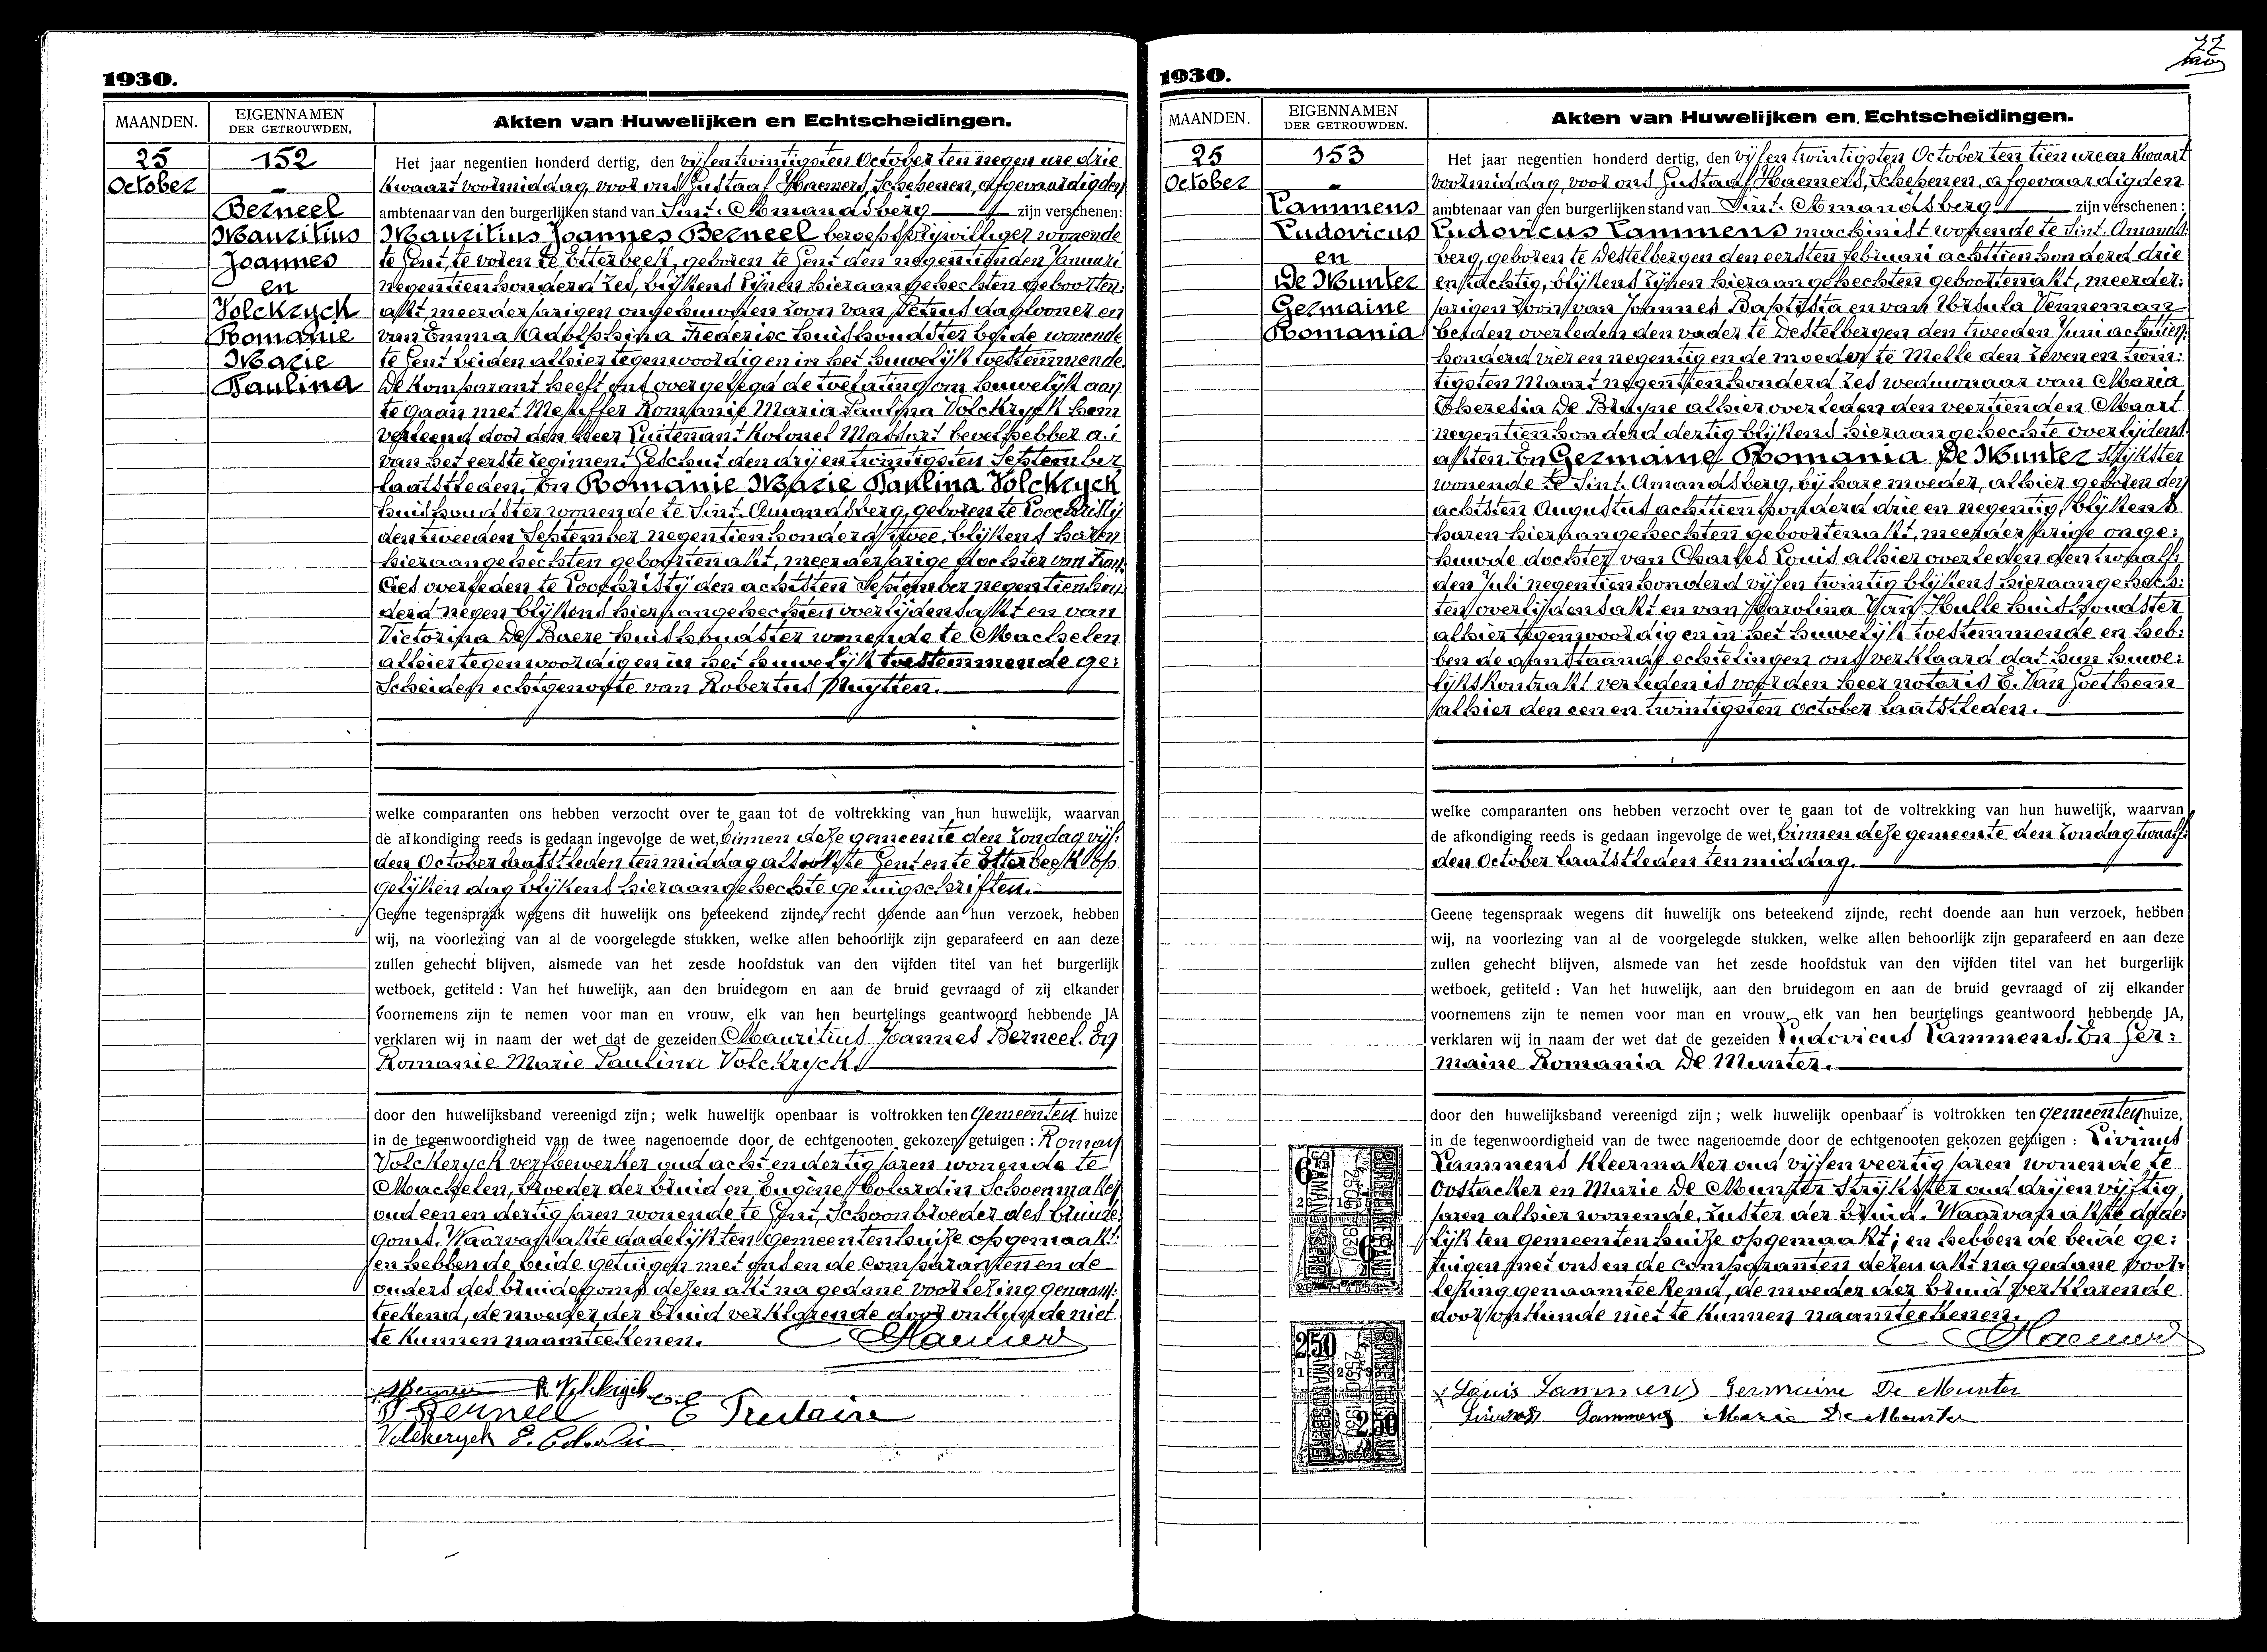 1930.
MAANDEN.
EIGENNAMEN
DER GETROUWDEN.
Akten van Huwelijken en Echtscheidingen.
25
October
152
Berneel
Mauritius
Joannes
en
Volckryck
Romanie
Marie
Paulina
Het jaar negentien honderd dertig, den vijfentwintigsten October ten negen ure drie
kwaart voormiddag, voor ons Gustaaf Haemers, Schepenen, afgevaardigden
ambtenaar van den burgerlijken stand van Sint. Amandsberg zijn verschenen:
Mauritius Joannes Berneel beroepsvrijwilliger wonende
te Gent, te voren te Etterbeek, geboren te Gent den negentienden Januari
negentienhonderd zes, blijkens zijnen hieraangehechten geboorten:
akt, meerderjarigen ongehuwden zoon van Petrus daglooner en
van Emma Adolphina Frederisc huishoudster beide wonende
te Gent beiden alhier tegenwoordig en in het huwelijk toestemmende
De komparant heeft ons overgelegd de toelating om huwelijk aan
te gaan met Mejuffer Romanie Maria Paulina Volckryck hem
verleend door den Heer Luitenant Kolonel Massart bevelhebber a.i
van het eerste regiment Geschut den drijentwintigsten September
laatstleden. En Romanie Marie Paulina Volckryck
huishoudster wonende te Sint. Amandsberg, geboren te Loochristy
den tweeden September negentienhonderd twee, blijkens haren
hieraangehechten geboortenakt, meerderjarige dochter van Fran:
cies overleden te Loochristy den achtsten September negentienhon:
derd negen blijkens hieraangehechten overlijdensakt en van
Victorina De Baere huishoudster wonende te Machelen
alhier tegenwoordig en in het huwelijk toestemmende ge:
scheiden echtgenoote van Robertus Nuytten.
welke comparanten ons hebben verzocht over te gaan tot de voltrekking van hun huwelijk, waarvan
de afkondiging reeds is gedaan ingevolge de wet, binnen deze gemeente den zondag vijf:
den October laatstleden ten middag alsook te Gent en te Etterbeek op
gelijken dag blijkens hieraangehechte getuigschriften.
Geene tegenspraak wegens dit huwelijk ons beteekend zijnde, recht doende aan hun verzoek, hebben
wij, na voorlezing van al de voorgelegde stukken, welke allen behoorlijk zijn geparafeerd en aan deze
zullen gehecht blijven, alsmede van het zesde hoofdstuk van den vijfden titel van het burgerlijk
wetboek, getiteld : Van het huwelijk, aan den bruidegom en aan de bruid gevraagd of zij elkander
voornemens zijn te nemen voor man en vrouw, elk van hen beurtelings geantwoord hebbende JA
verklaren wij in naam der wet dat de gezeiden Mauritius Joannes Berneel. En
Romanie Marie Paulina Volckryck
door den huwelijksband vereenigd zijn; welk huwelijk openbaar is voltrokken ten Gemeenten huize
in de tegenwoordigheid van de twee nagenoemde door de echtgenooten gekozen getuigen : Roman
Volckeryck verfbewerker oud achtendertig jaren wonende te
Machelen, broeder der bruid en Eugène Colardin Schoenmaker
oud een en dertig jaren wonende te Gent, Schoonbroeder des bruide:
goms. Waarvan akte dadelijk ten Gemeentenhuize opgemaakt:
en hebben de beide getuigen met ons en de Comparanten en de
ouders des bruidegoms dezen akt na gedane voorlezing genaam:
teekend, de moeder der bruid verklarende door onkunde niet
te kunnen naamteekenen. Haemers
R Volckryck
Berneel
Volckeryck E. Colardin
1930.
MAANDEN.
EIGENNAMEN
DER GETROUWDEN.
Akten van Huwelijken en Echtscheidingen.
25
October
153
Lammens
Ludovicus
en
De Munter
Germaine
Romania
Het jaar negentien honderd dertig, den vijfentwintigsten October ten tien ure en kwaart
voormiddag, voor ons Gustaaf Haemers, Schepenen, afgevaardigden
ambtenaar van den burgerlijken stand van Sint. Amandsberg zijn verschenen :
Ludovicus Lammens machinist wonende te Sint. Amands:
berg, geboren te Destelbergen den eersten februari achttienhonderd drie
en tachtig, blijkens zijnen hieraangehechten geboortenakt, meerder:
jarigen zoon van Joannes Baptista en van Ursula Venneman
beiden overleden den vader te Destelbergen den tweeden Juni achttien:
honderd vier en negentig en de moeder te Melle den zeven en twin:
tigsten Maart negentienhonderd zes weduwnaar van Maria
Theresia De Bruyne alhier overleden den veertienden Maart
negentienhonderd dertig blijkens hieraangehechte overlijdens:
akten. En Germaine Romania De Munter Strijkster
wonende te Sint. Amandsberg, bij hare moeder, alhier geboren den
achtsten Augustus achttienhonderd drie en negentig, blijkens
haren hieraangehechten geboortenakt, meerderjarige onge:
huwde dochter van Charles Louis alhier overleden den twaalf:
den Juli negentienhonderd vijfentwintig blijkens hieraangehech:
ten overlijdensakt en van Karolina Van Hulle huishoudster
alhier tegenwoordig en in het huwelijk toestemmende en heb:
ben de aanstaande echtelingen ons verklaard dat hun huwe:
lijkskontrakt verleden is voor den heer notaris E. Van Goethem
alhier den een en twintigsten October laatstleden.
welke comparanten ons hebben verzocht over te gaan tot de voltrekking van hun huwelijk, waarvan
de afkondiging reeds is gedaan ingevolge de wet, binnen deze gemeente den zondag twaalf:
den October laatstleden ten middag.
Geene tegenspraak wegens dit huwelijk ons beteekend zijnde, recht doende aan hun verzoek, hebben
wij, na voorlezing van al de voorgelegde stukken, welke allen behoorlijk zijn geparafeerd en aan deze
zullen gehecht blijven, alsmede van het zesde hoofdstuk van den vijfden titel van het burgerlijk
wetboek, getiteld : Van het huwelijk, aan den bruidegom en aan de bruid gevraagd of zij elkander
voornemens zijn te nemen voor man en vrouw, elk van hen beurtelings geantwoord hebbende JA,
verklaren wij in naam der wet dat de gezeiden Ludovicus Lammens. En Ger:
maine Romania De Munter.
door den huwelijksband vereenigd zijn ; welk huwelijk openbaar is voltrokken ten gemeenten huize,
in de tegenwoordigheid van de twee nagenoemde door de echtgenooten gekozen getuigen : Livinus
Lammens Kleermaker oud vijfenveertig jaren wonende te
Oostacker en Marie De Munter Strijkster oud drijenvijftig
jaren alhier wonende, zuster der bruid. Waarvan akte dade:
lijk ten gemeentenhuize opgemaakt; en hebben de beide ge:
tuigen met ons en de comparanten dezen akt na gedane voor:
lezing genaamteekend, de moeder der bruid verklarende
door onkunde niet te kunnen naamteekenen.
Haemers
Louis Lammens Germaine De Munter
Livinus Lammens Marie De Munter